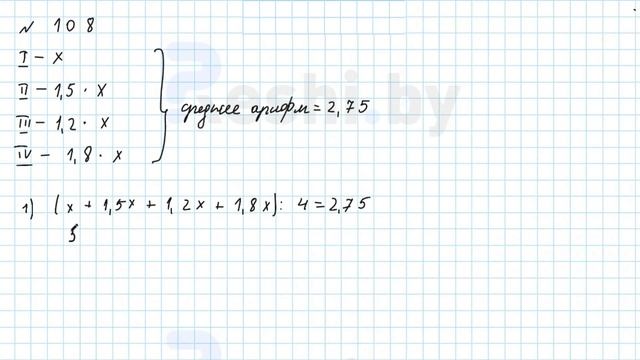 № 108
I – x
II – 1,5 · x
III – 1,2 · x
IV – 1,8 · x
среднее арифм = 2,75
1) (x + 1,5x + 1,2x + 1,8x) : 4 = 2,75
5